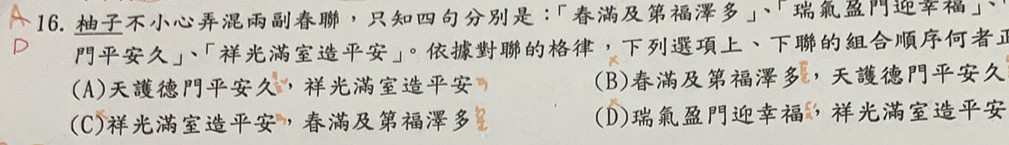 A 16. 柚子不小心弄混兩副春聯，只知四句分別是：「春滿及第福澤多」、「瑞氣盈門迎幸福」、
D 門平安久」、「祥光滿室造平安」。依據對聯的格律，下列選項上、下聯的組合順序何者正
(A)天護德門平安久，祥光滿室造平安 (B)春滿及第福澤多，天護德門平安久
(C)祥光滿室造平安，春滿及第福澤多 (D)瑞氣盈門迎幸福，祥光滿室造平安